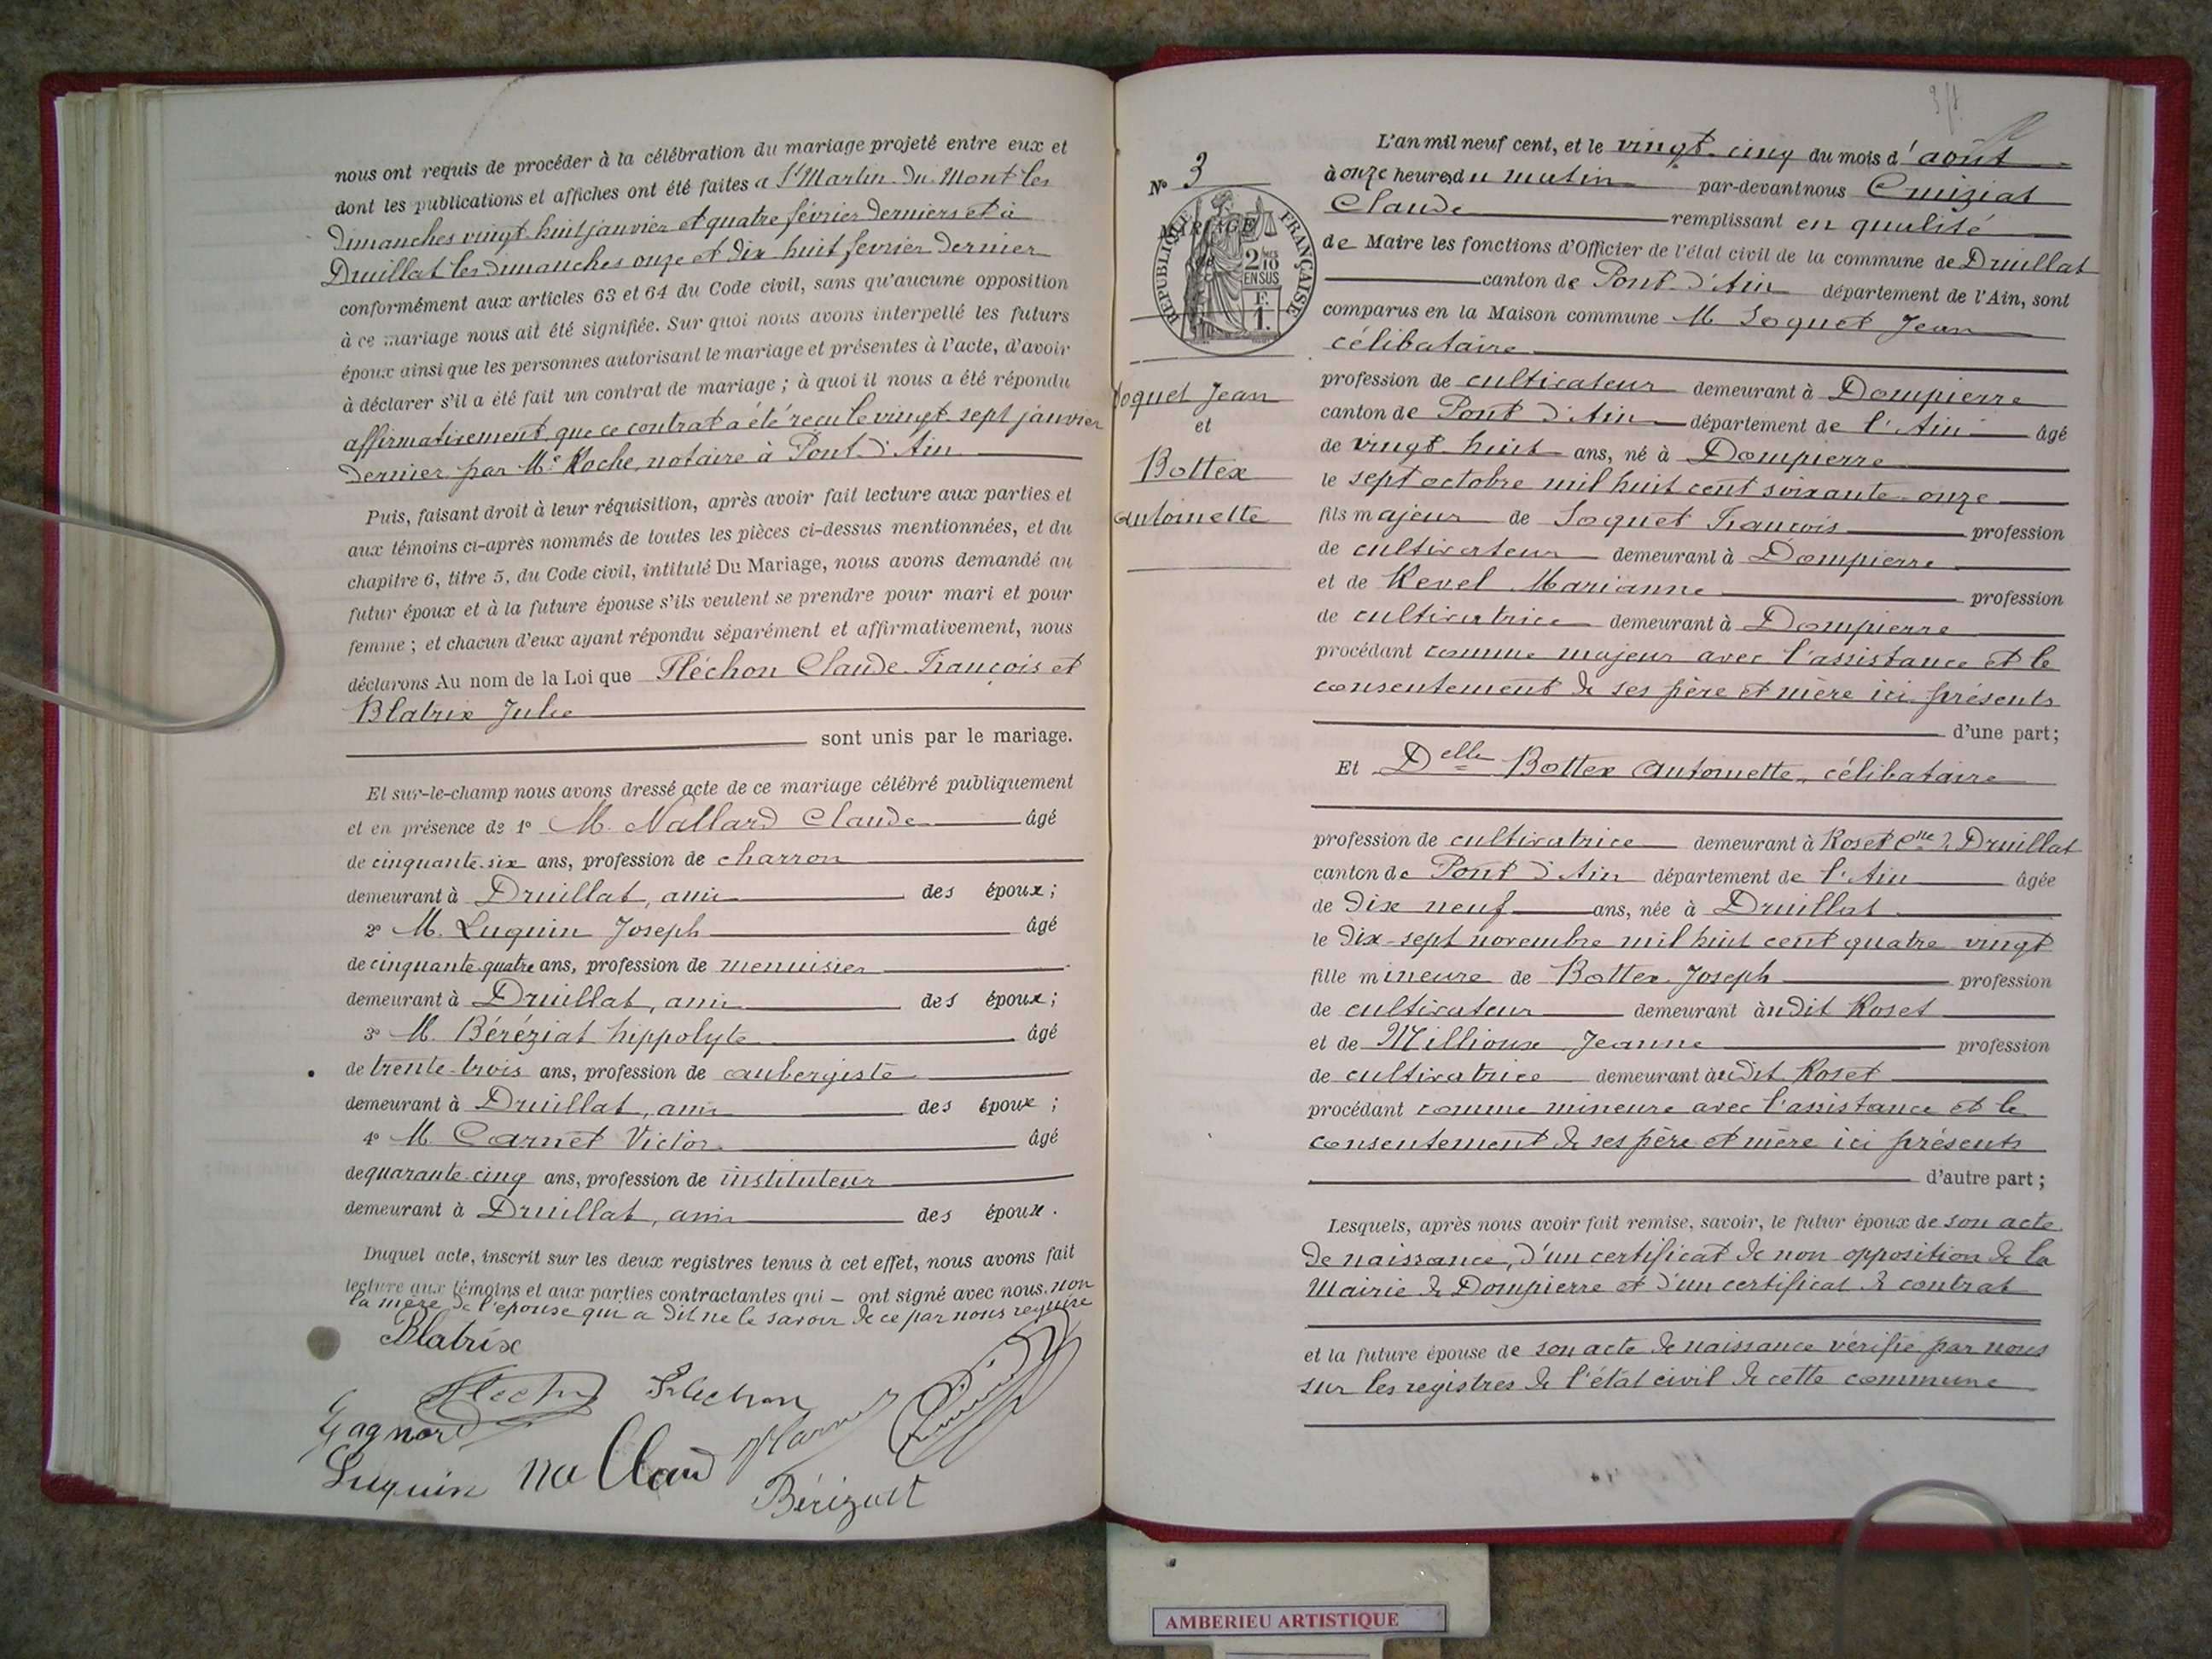 nous ont requis de procéder à la célébration du mariage projeté entre eux et
dont les publications et affiches ont été faites a St Martin-du-Mont les
dimanches vingt-huit janvier et quatre février derniers et à
Druillat les dimanches onze et dix huit fevrier dernier
conformément aux articles 63 et 64 du Code civil, sans qu'aucune opposition
à ce mariage nous ait été signifiée. Sur quoi nous avons interpellé les futurs
époux ainsi que les personnes autorisant le mariage et présentes à l'acte, d'avoir
à déclarer s'il a été fait un contrat de mariage ; à quoi il nous a été répondu
affirmativement que ce contrat a été reçu le vingt-sept janvier
dernier par Me Roche, notaire à Pont-d'Ain
Puis, faisant droit à leur réquisition, après avoir fait lecture aux parties et
aux témoins ci-après nommés de toutes les pièces ci-dessus mentionnées, et du
chapitre 6, titre 5, du Code civil, intitulé Du Mariage, nous avons demandé au
futur époux et à la future épouse s'ils veulent se prendre pour mari et pour
femme ; et chacun d'eux ayant répondu séparément et affirmativement, nous
déclarons Au nom de la Loi que Fléchon Claude-François et
Blatrix Julie
sont unis par le mariage.
Et sur-le-champ nous avons dressé acte de ce mariage célébré publiquement
et en présence de 1° M. Nallard Claude âgé
de cinquante-six ans, profession de charron
demeurant à Druillat, ami des époux ;
2° M. Luquin Joseph âgé
de cinquante-quatre ans, profession de menuisier
demeurant à Druillat, ami des époux ;
3° M. Béréziat hippolyte âgé
de trente-trois ans, profession de aubergiste
demeurant à Druillat, ami des époux ;
4° M Carnet Victor âgé
de quarante-cinq ans, profession de instituteur
demeurant à Druillat, ami des époux.
Duquel acte, inscrit sur les deux registres tenus à cet effet, nous avons fait
lecture aux témoins et aux parties contractantes qui – ont signé avec nous, non
la mère de l'épouse qui a dit ne le savoir de ce par nous requise
Blatrix
Flechon
Gagnord
Luquin nallard
N° 3
MARIAGE
RÉPUBLIQUE FRANÇAISE
2/10 EN SUS
F. 1.
Soquet Jean
et
Bottex
Antoinette
L'an mil neuf cent, et le vingt-cinq du mois d'août
à onze heures du matin par-devant nous Cruiziat
Claude remplissant en qualité
de Maire les fonctions d'Officier de l'état civil de la commune de Druillat
canton de Pont-d'Ain département de l'Ain, sont
comparus en la Maison commune M Soquet Jean
célibataire
profession de cultivateur demeurant à Dompierre
canton de Pont d'Ain département de l'Ain âgé
de vingt-huit ans, né à Dompierre
le sept octobre mil huit cent soixante-onze
fils majeur de Soquet François profession
de cultivateur demeurant à Dompierre
et de Revel Marianne profession
de cultivatrice demeurant à Dompierre
procédant comme majeur avec l'assistance et le
consentement de ses père et mère ici présents
d'une part ;
Et Delle Bottex Antoinette, célibataire
profession de cultivatrice demeurant à Roset Cne de Druillat
canton de Pont d'Ain département de l'Ain âgée
de dix neuf ans, née à Druillat
le dix-sept novembre mil huit cent quatre vingt
fille mineure de Bottex Joseph profession
de cultivateur demeurant àudit Roset
et de Millioux Jeanne profession
de cultivatrice demeurant àudit Roset
procédant comme mineure avec l'assistance et le
consentement de ses père et mère ici présents
d'autre part ;
Lesquels, après nous avoir fait remise, savoir, le futur époux de son acte
de naissance, d'un certificat de non opposition de la
Mairie de Dompierre et d'un certificat de contrat
et la future épouse de son acte de naissance vérifié par nous
sur les registres de l'état civil de cette commune
AMBERIEU ARTISTIQUE